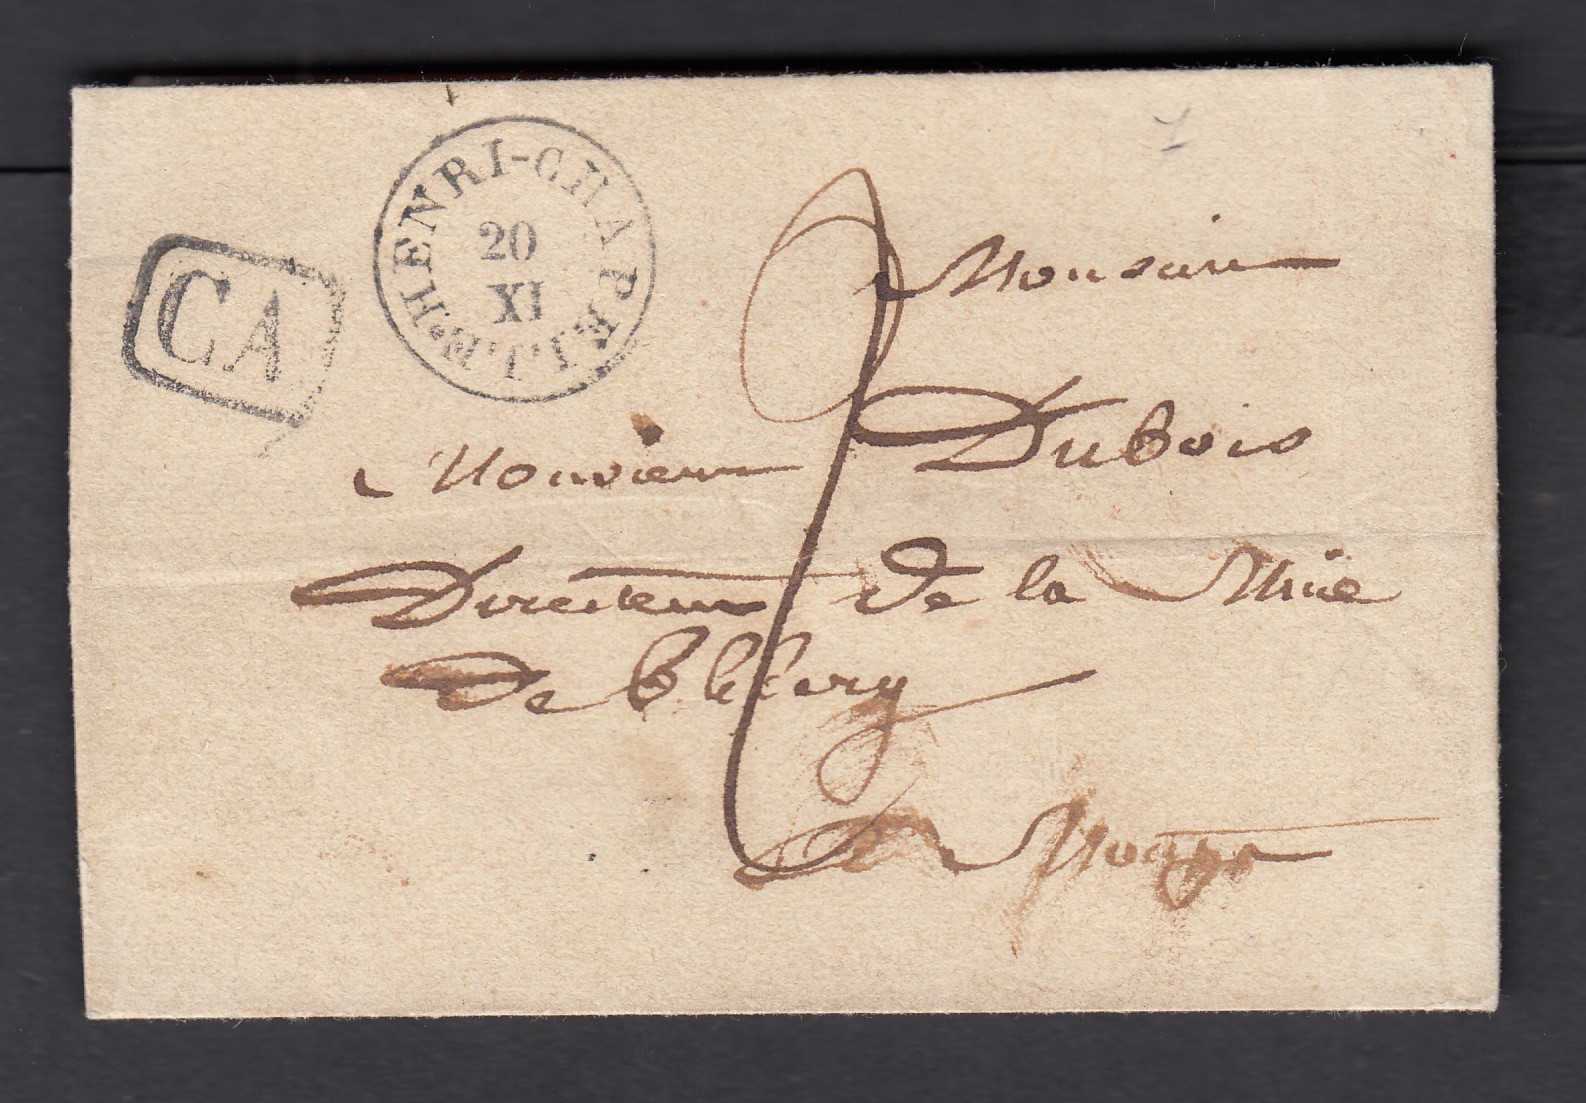 HENRI-CHAPELLE.
20
XI
CA
Monsieur
Monsieur Dubois
Directeur de la Mine
de
a